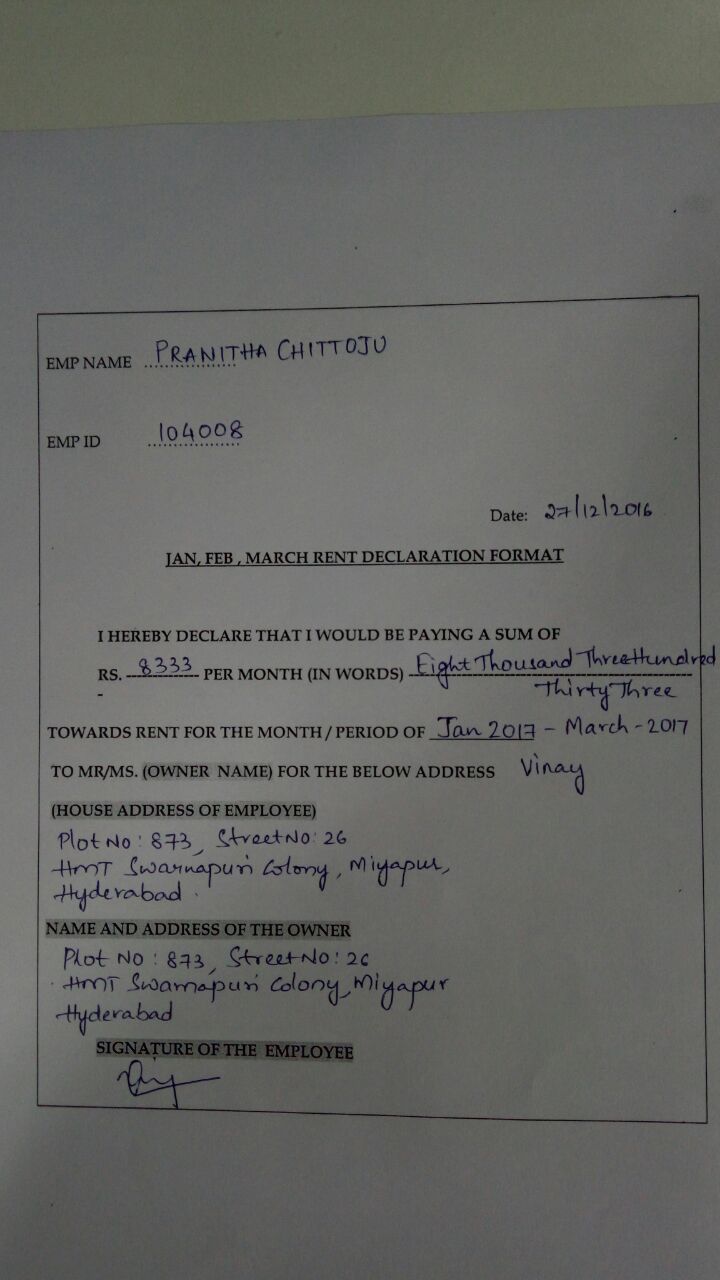 EMP NAME PRANITHA CHITTOJU
EMP ID 104008
Date: 27/12/2016
JAN, FEB , MARCH RENT DECLARATION FORMAT
I HEREBY DECLARE THAT I WOULD BE PAYING A SUM OF
RS. 8333 PER MONTH (IN WORDS) Eight Thousand Three Hundred
- Thirty Three
TOWARDS RENT FOR THE MONTH / PERIOD OF Jan 2017 - March - 2017
TO MR/MS. (OWNER NAME) FOR THE BELOW ADDRESS Vinay
(HOUSE ADDRESS OF EMPLOYEE)
Plot No : 873, Street No: 26
HMT Swarnapuri Colony, Miyapur,
Hyderabad.
NAME AND ADDRESS OF THE OWNER
Plot No : 873, Street No: 26
HMT Swarnapuri Colony, Miyapur
Hyderabad
SIGNATURE OF THE EMPLOYEE